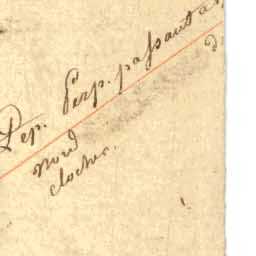 Lep. Perp. passant a
nord
clocher.